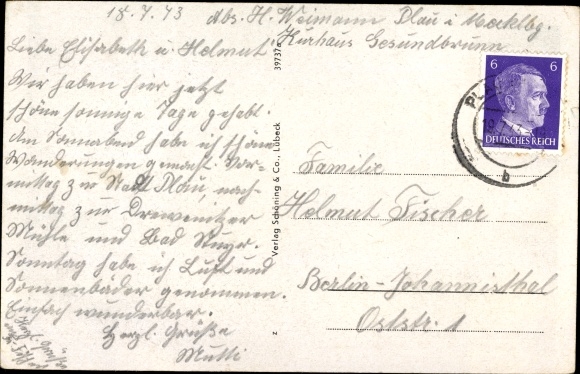 18.4.43 Abs. H. Weimann Plau i Mecklbg.
Kurhaus Gesundbrunn
Liebe Elisabeth u. Helmut!
Wir haben hier jetzt
schöne sonnige Tage gehabt.
Am Sonnabend habe ich schöne
Wanderungen gemacht. Vor-
mittag zur Stadt Plau, nach-
mittag zur
Mühle und Bad Stuer.
Sonntag habe ich Luft und
Sonnenbäder genommen.
Einfach wunderbar.
Herzl. Grüße
Mutti
39737a
Verlag Schöning & Co., Lübeck
z
6 6
DEUTSCHES REICH
PL
b
Familie
Helmut Fischer
Berlin-Johannisthal
Oststr. 1